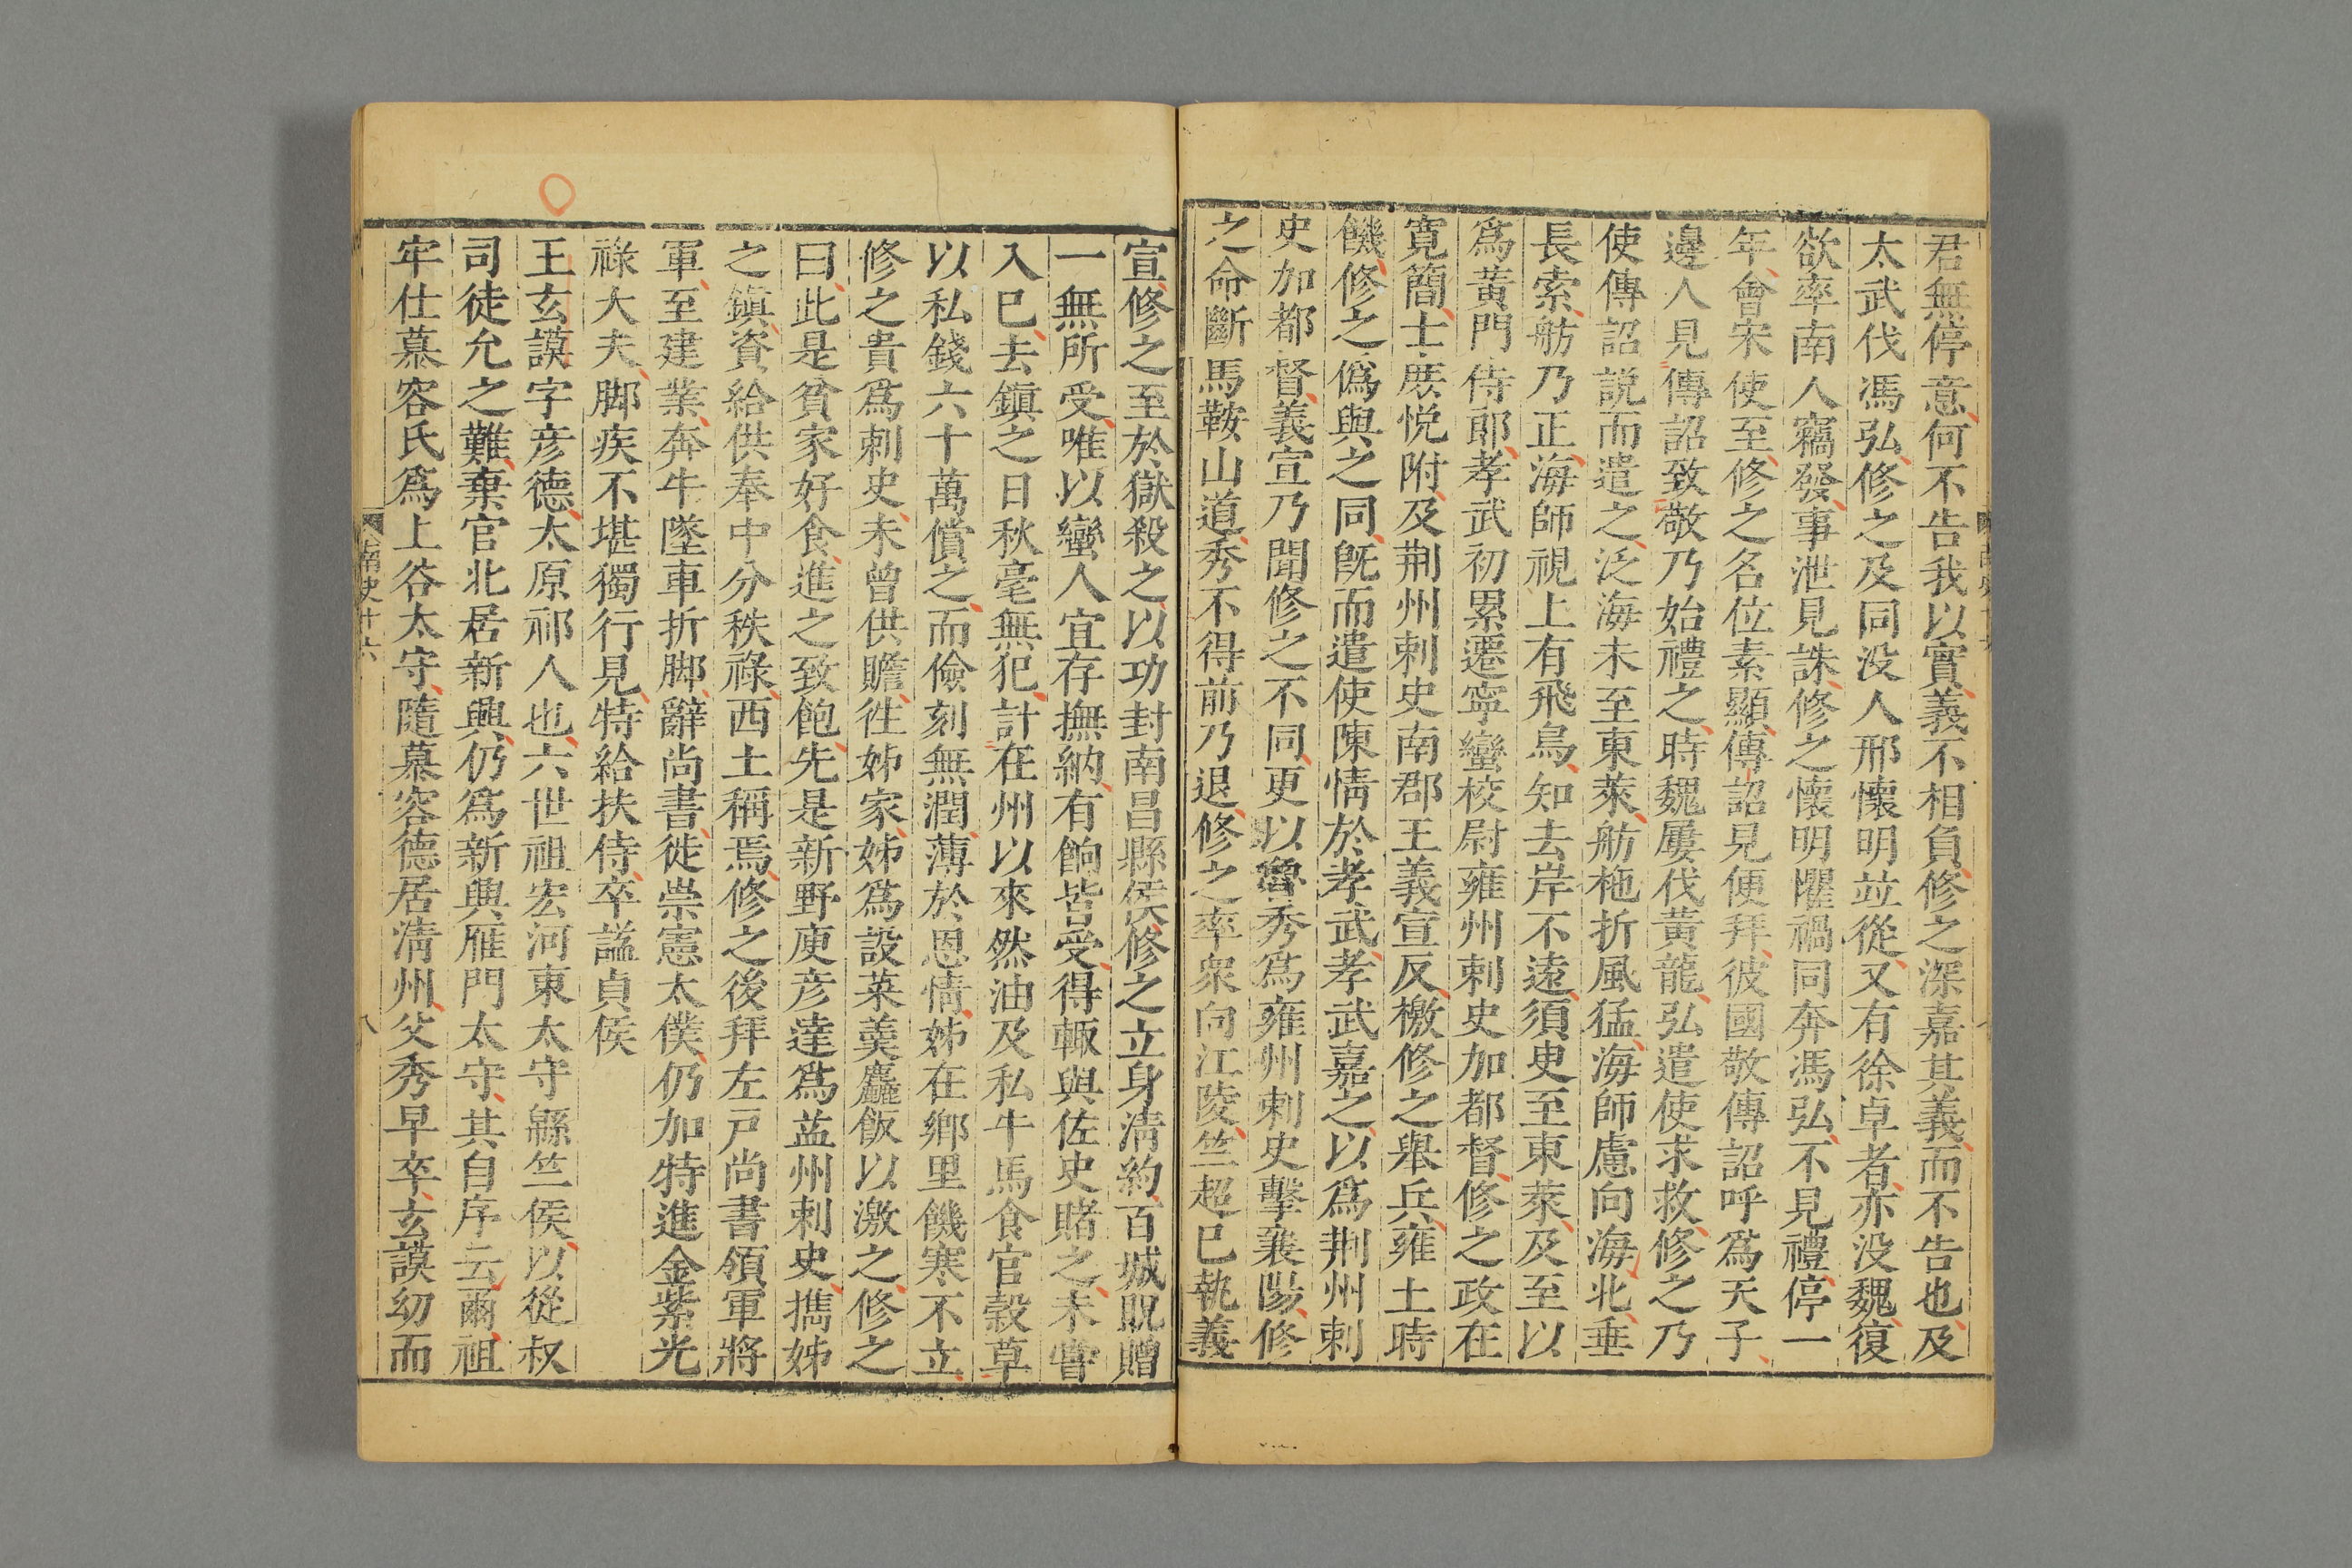 君無停意何不告我以實義不相負修之深嘉其義而不告也及
太武伐馮弘修之及同没人邢懷明竝從又有徐卓者亦没魏復
欲率南人竊發事泄見誅修之懷明懼禍同奔馮弘不見禮停一
年會宋使至修之名位素顯傳詔見便拜彼國敬傳詔呼爲天子
邊人見傳詔致敬乃始禮之時魏屢伐黃龍弘遣使求救修之乃
使傳詔説而遣之泛海未至東萊舫柂折風猛海師慮向海北垂
長索舫乃正海師視上有飛鳥知去岸不遠須臾至東萊及至以
爲黃門侍郎孝武初累遷寧蠻校尉雍州刺史加都督修之政在
寛簡士庶悦附及荆州刺史南郡王義宣反檄修之舉兵雍土時
饑修之僞與之同旣而遣使陳情於孝武孝武嘉之以爲荆州刺
史加都督義宣乃聞修之不同更以魯秀爲雍州刺史擊襄陽修
之命斷馬鞍山道秀不得前乃退修之率衆向江陵竺超已執義
宣修之至於獄殺之以功封南昌縣侯修之立身淸約百城貺贈
一無所受唯以蠻人宜存撫納有餉皆受得輒與佐史賭之未嘗
入已去鎭之日秋毫無犯計在州以來然油及私牛馬食官穀草
以私錢六十萬償之而儉刻無潤薄於恩情姊在鄉里饑寒不立
修之貴爲刺史未曾供贍徃姊家姊爲設菜羹麤飯以激之修之
曰此是貧家好食進之致飽先是新野庾彦達爲益州刺史攜姊
之鎭資給供奉中分秩祿西土稱焉修之後拜左戸尚書領軍將
軍至建業奔牛墜車折脚辭尚書徙崇憲太僕仍加特進金紫光
祿大夫脚疾不堪獨行見特給扶侍卒謚貞侯
王玄謨字彦德太原祁人也六世祖宏河東太守緜竺侯以從叔
司徒允之難棄官北居新興仍爲新興雁門太守其自序云爾祖
牢仕慕容氏爲上谷太守隨慕容德居淸州父秀早卒玄謨幼而
南史十六
八